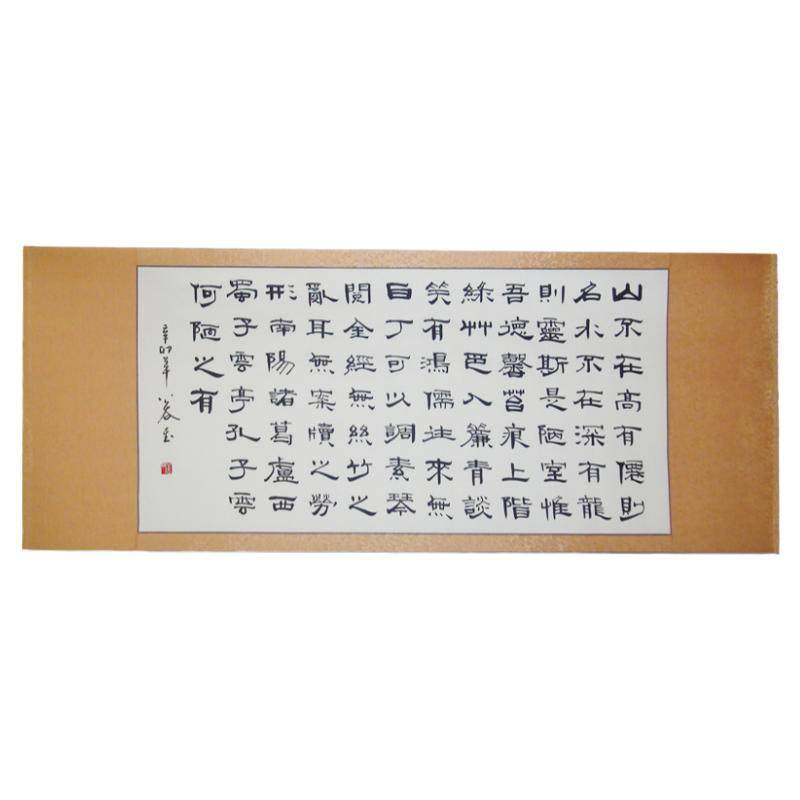 山不在高有僊則
名水不在深有龍
則靈斯是陋室惟
吾德馨苔痕上階
綠艸色入簾青談
笑有鴻儒往來無
白丁可以調素琴
閱金經無絲竹之
亂耳無案牘之勞
形南陽諸葛盧西
蜀子雲亭孔子雲
何陋之有
辛卯年